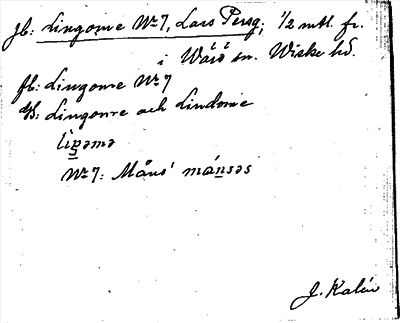 jb: Lingome No 7, Lars Persg, 1/2 mtl. fr.
i Wärö sn. Wiske hd.
fb: Lingome No 7
Us: Lingomre och Lindome
No 7: Måns' månsəs
J. Kalén